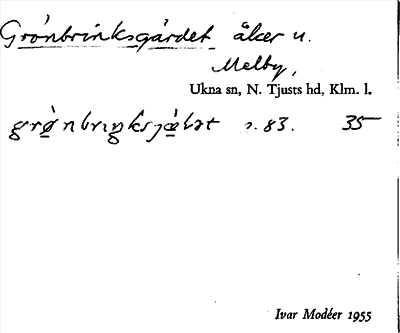 Grönbrinksgärdet åker u.
Melby,
Ukna sn, N. Tjusts hd, Klm. l.
s. 83. 35
Ivar Modéer 1955